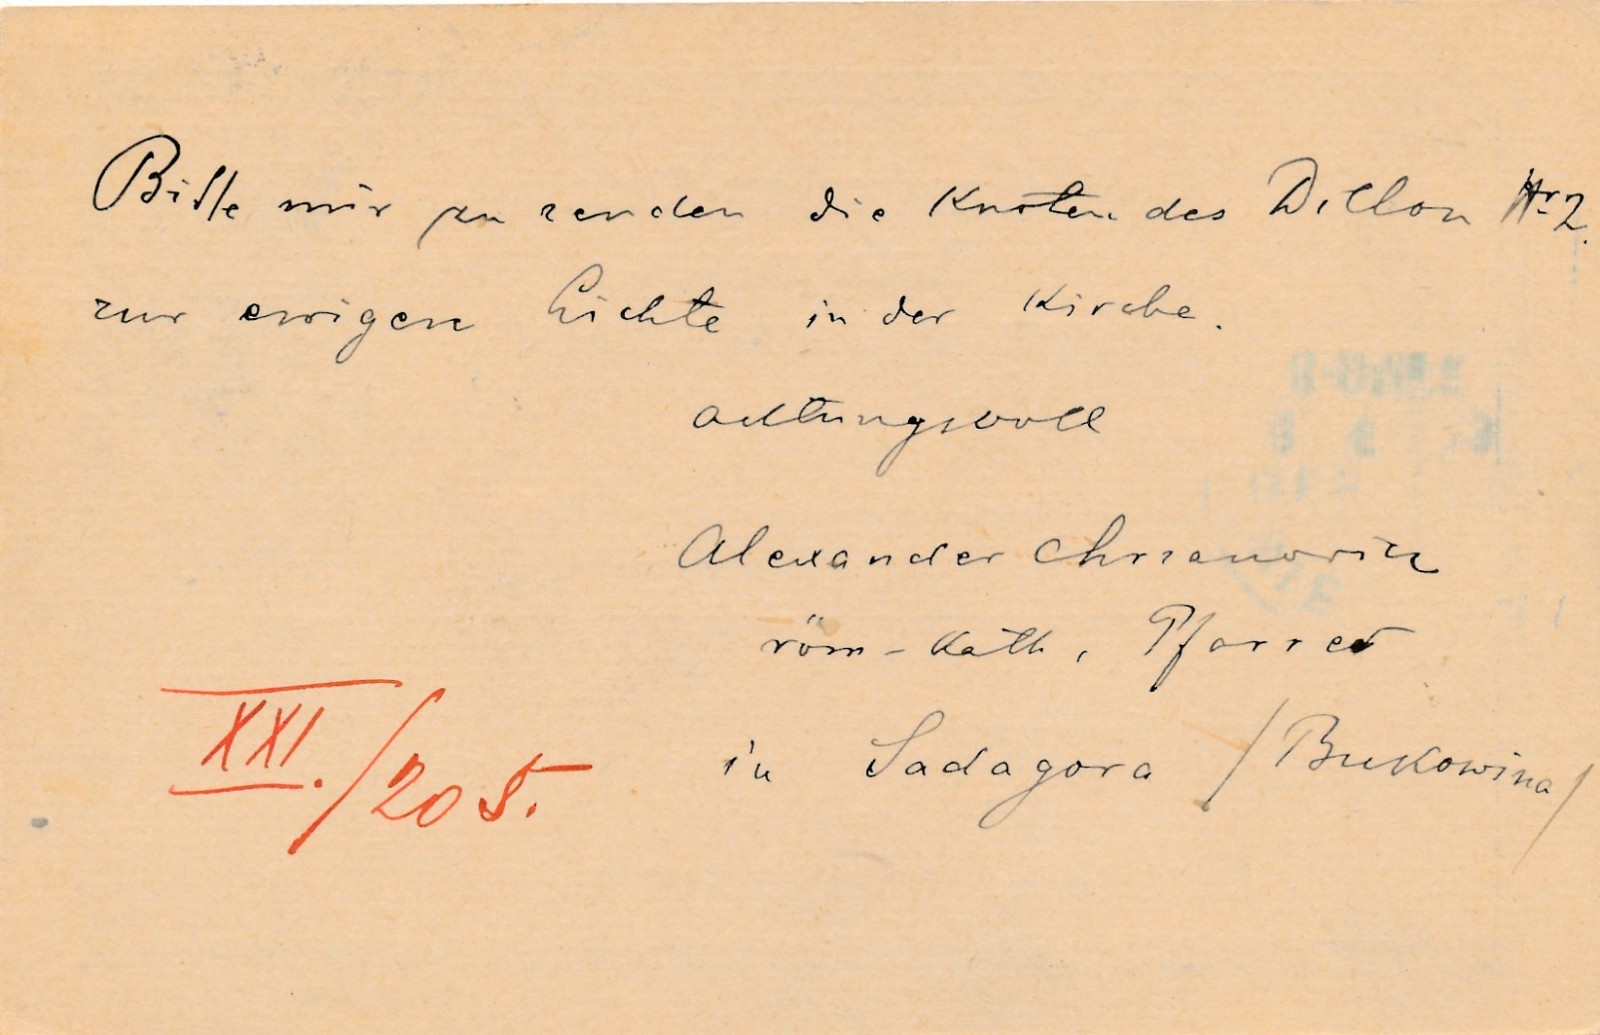 Bitte mir zu senden die Knoten des Dillon Nr 2.
zur ewigen Lichte in der Kirche.
achtungsvoll
Alexander Chrzanowicz
röm-kath. Pfarrer
in Sadagora /Bukowina/
XXI./205.